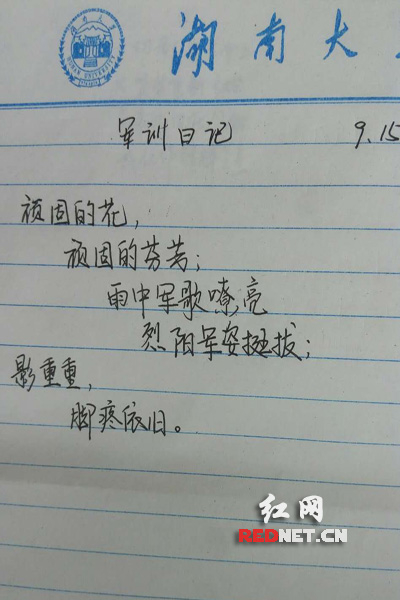 湖南大
军训日记 9.15
顽固的花，
顽固的芬芳；
雨中军歌嘹亮
烈阳军姿挺拔；
影重重，
脚疼依旧。
红网
REDNET.CN